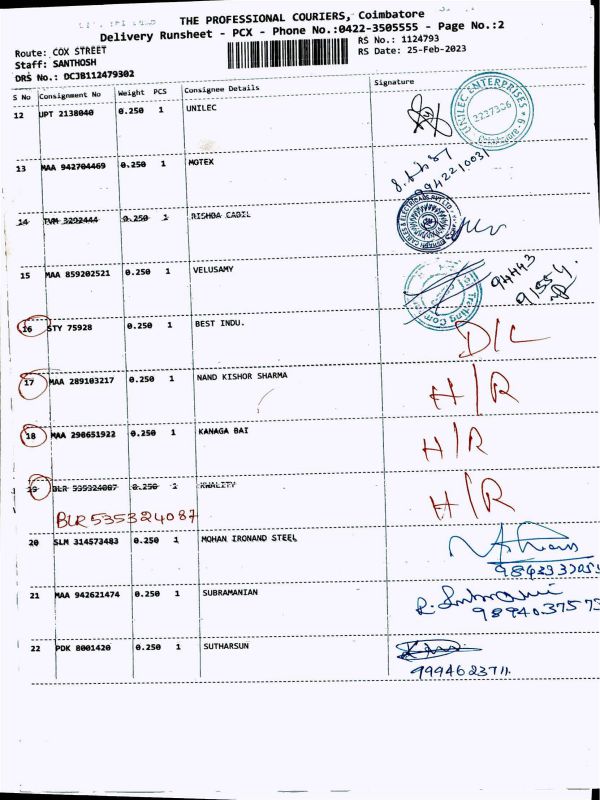 THE PROFESSIONAL COURIERS, Coimbatore
Delivery Runsheet - PCX - Phone No.:0422-3505555 - Page No.:2
Route: COX STREET
RS No.: 1124793
Staff: SANTHOSH
RS Date: 25-Feb-2023
DRS No.: DCJB112479302
S No Consignment No Weight PCS Consignee Details Signature
12 UPT 2138040 0.250 1 UNILEC
UNILEC ENTERPRISES
2227306
13 MAA 942704469 0.250 1 MOTEX
9942210031
14 TVM 3292444 0.250 1 RISHBA CABIL
15 MAA 859202521 0.250 1 VELUSAMY
94443
91554
Trading Com
16 STY 75928 0.250 1 BEST INDU. D/L
17 MAA 289103217 0.250 1 NAND KISHOR SHARMA H/R
18 MAA 298651922 0.250 1 KANAGA BAI H/R
19 BLR 535324087 0.250 1 KWALITY H/R
BLR 535324087
20 SLM 314573483 0.250 1 MOHAN IRONAND STEEL
21 MAA 942621474 0.250 1 SUBRAMANIAN
9894037573
22 PDK 8001420 0.250 1 SUTHARSUN
9994623711